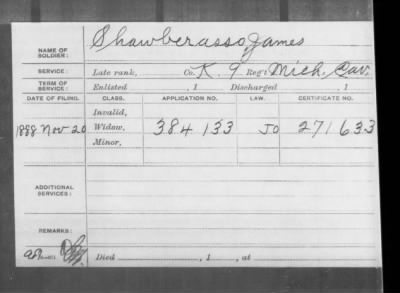 NAME OF SOLDIER: Shawberasso, James
SERVICE: Late rank, Co. K. 9 Reg't Mich. Cav.
TERM OF SERVICE: Enlisted , 1 Discharged , 1
DATE OF FILING. CLASS. APPLICATION NO. LAW. CERTIFICATE NO.
Invalid,
1888 Nov 20 Widow, 384 133 271 633
Minor,
ADDITIONAL SERVICES:
REMARKS:
Died , 1 , at